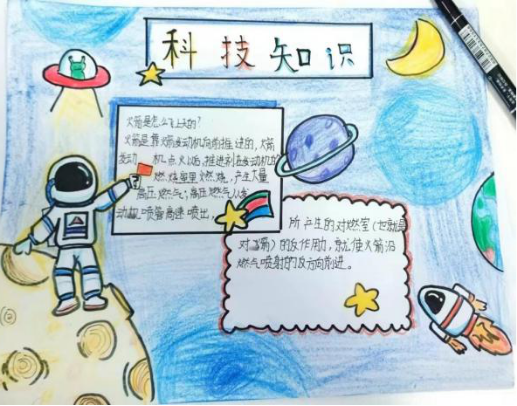 科技知识
火箭是怎么飞上天的?
火箭是靠火箭发动机向前推进的,火箭
发动机点火以后,推进剂在发动机的
燃烧室里燃烧,产生大量
高压燃气;高压燃气从发
动机喷管高速喷出,
所产生的对燃烧室(也就是
对火箭)的反作用力,就使火箭沿
燃气喷射的反方向前进。